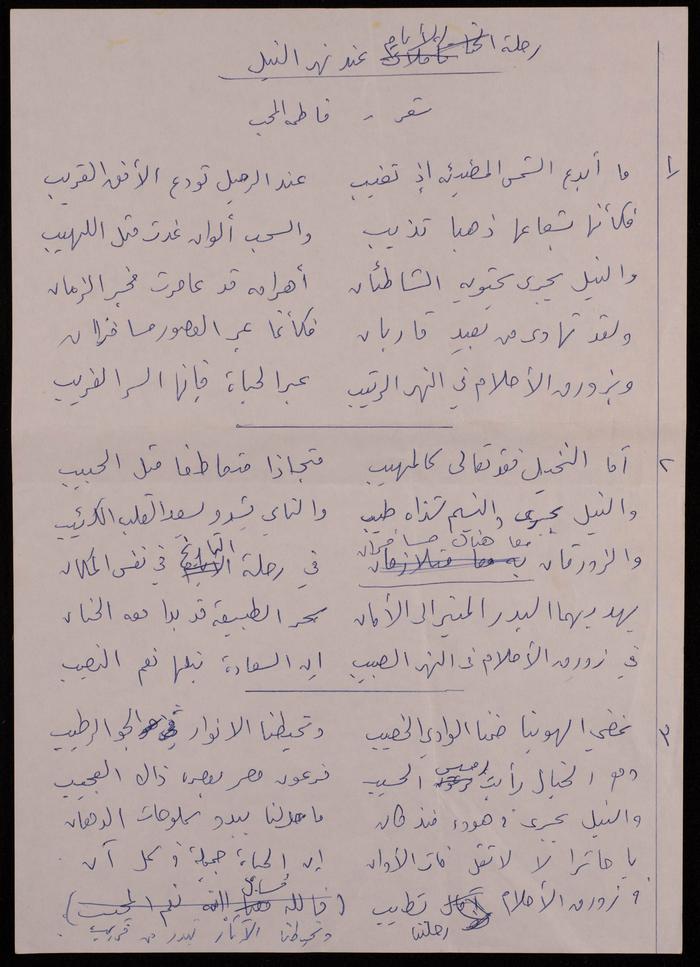 رحلة الأيام عند نهر النيل
شعر - فاطمة المحب
١ ما أبدع الشمس المضيئة إذ تغيب عند الرحيل تودع الأفق القريب
فكأنها شعاعها ذهبا تذيب والسحب ألوان غدت مثل اللهيب
والنيل يجري يحتويه الشاطئان أهرامه قد عاصرت فجر الزمان
ولقد تهادى من بعيد قاربان فكأنما عبر العصور مسافران
وبزورق الأحلام في النهر الرتيب عبر الحياة فإنها السر الغريب
٢ أما النخيل فقد تعالى كالمهيب متجاذبا متعاطفا مثل الحبيب
والنيل يجري والنسيم شذاه طيب والناي يشدو يسعد القلب الكئيب
معا هناك مسافران
والزورقان في رحلة التاريخ في نفس المكان
يهديهما البدر المنير إلى الأمان سحر الطبيعة قد بدا معه الحنان
في زورق الأحلام في النهر الصبيب إن السعادة نبلها نعم النصيب
٣ نمضي الهوينا ضمنا الوادي الخصيب وتحيطنا الانوار في الجو الرطيب
ومع الخيال رأيت رمسيس الحسيب فرعون مصر بعصره ذاك العجيب
والنيل يجري في هدوء منذ كان ما حولنا يبدو كلوحات الدهان
يا حائرا لا لا تقل فات الأوان إن الحياة جميلة في كل آن
في زورق الأحلام رحلتنا تطيب (فالله نعم المجيب)
وتحيطنا الآثار تبدو من قريب